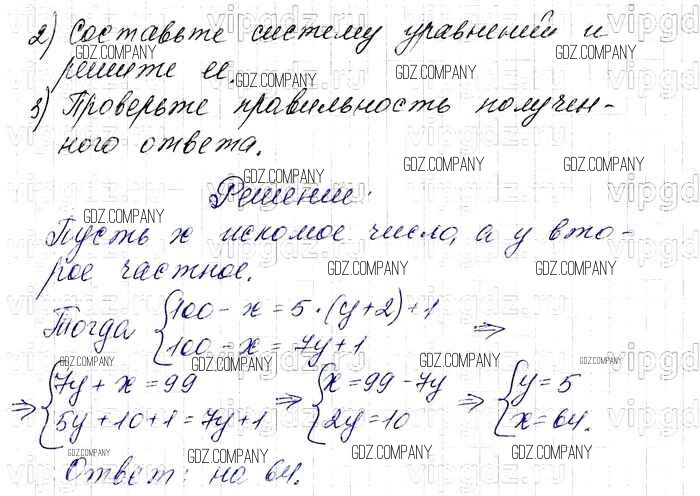 2) Составьте систему уравнений и
решите ее.
3) Проверьте правильность получен-
ного ответа.
Решение.
Пусть x искомое число, а y вто-
рое частное.
Тогда {100 - x = 5 · (y + 2) + 1
{100 - x = 7y + 1 ⇒
⇒ {7y + x = 99 ⇒ {x = 99 - 7y ⇒ {y = 5
{5y + 10 + 1 = 7y + 1 {2y = 10 {x = 64.
Ответ: на 64.
GDZ.COMPANY
vipgdz.ru